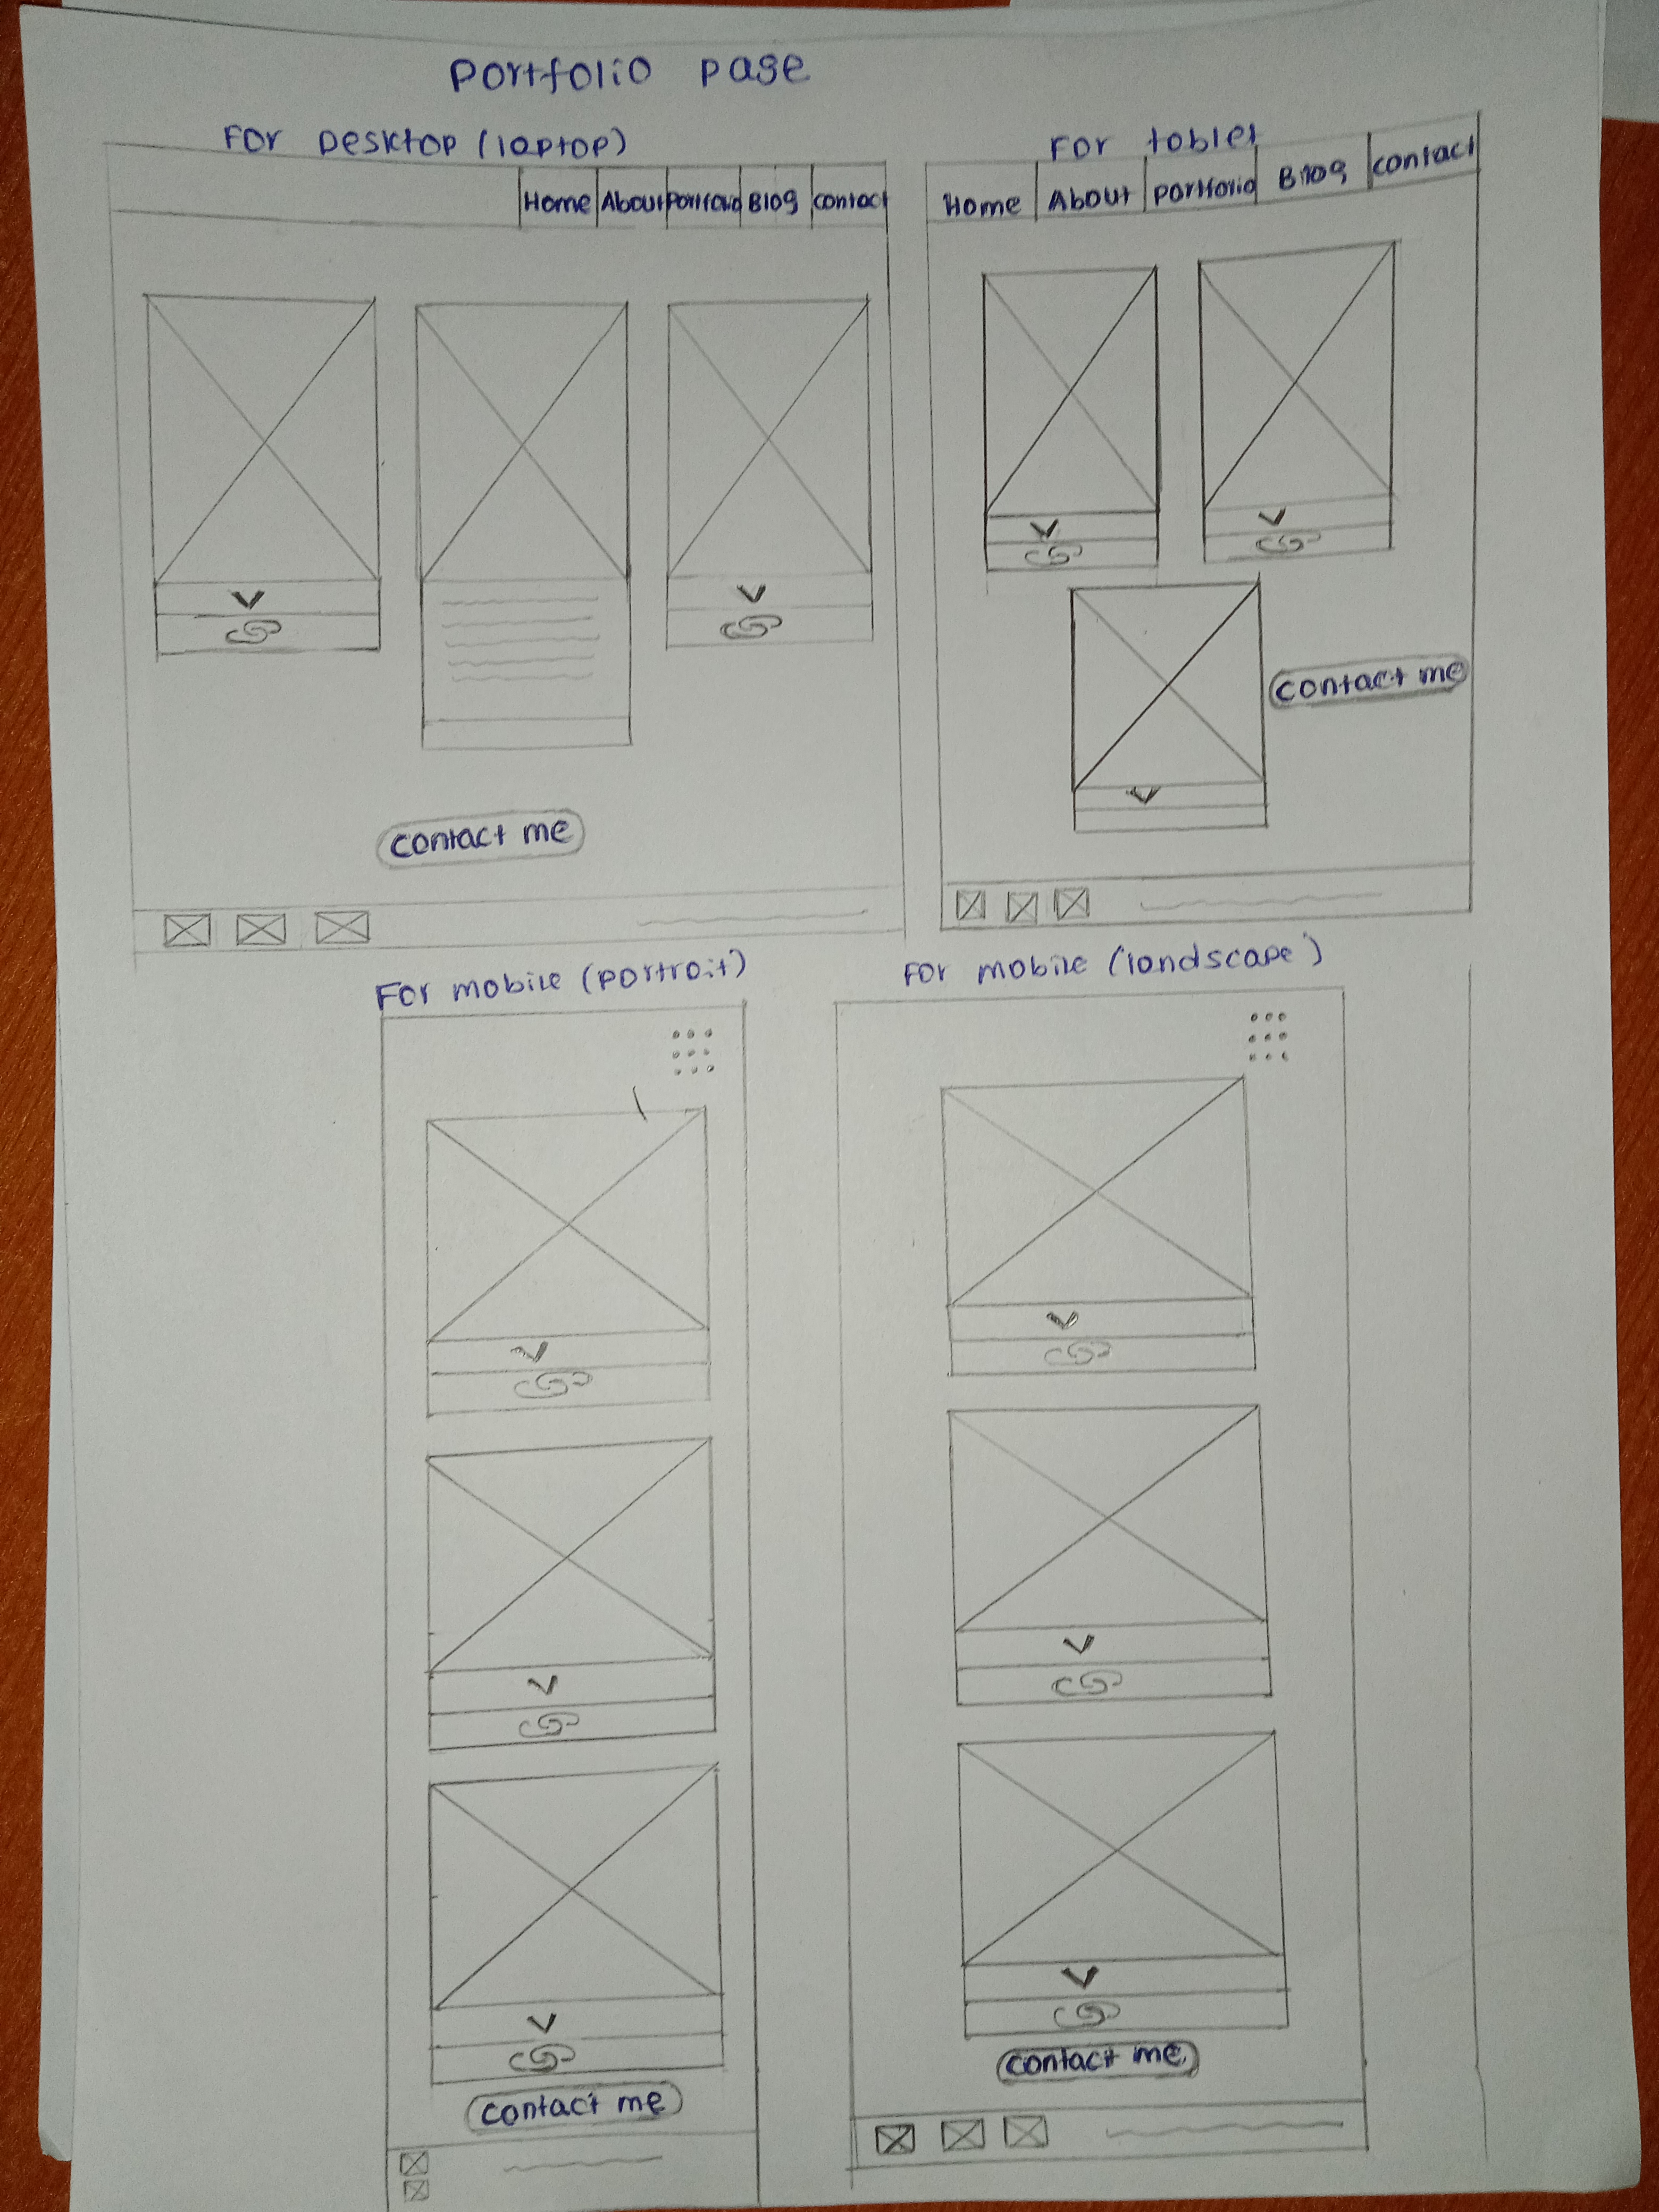 Portfolio page
For Desktop (laptop)
Home About Portfolio Blog contact
contact me
For tablet
Home About portfolio Blog contact
contact me
For mobile (portrait)
contact me
For mobile (landscape)
contact me